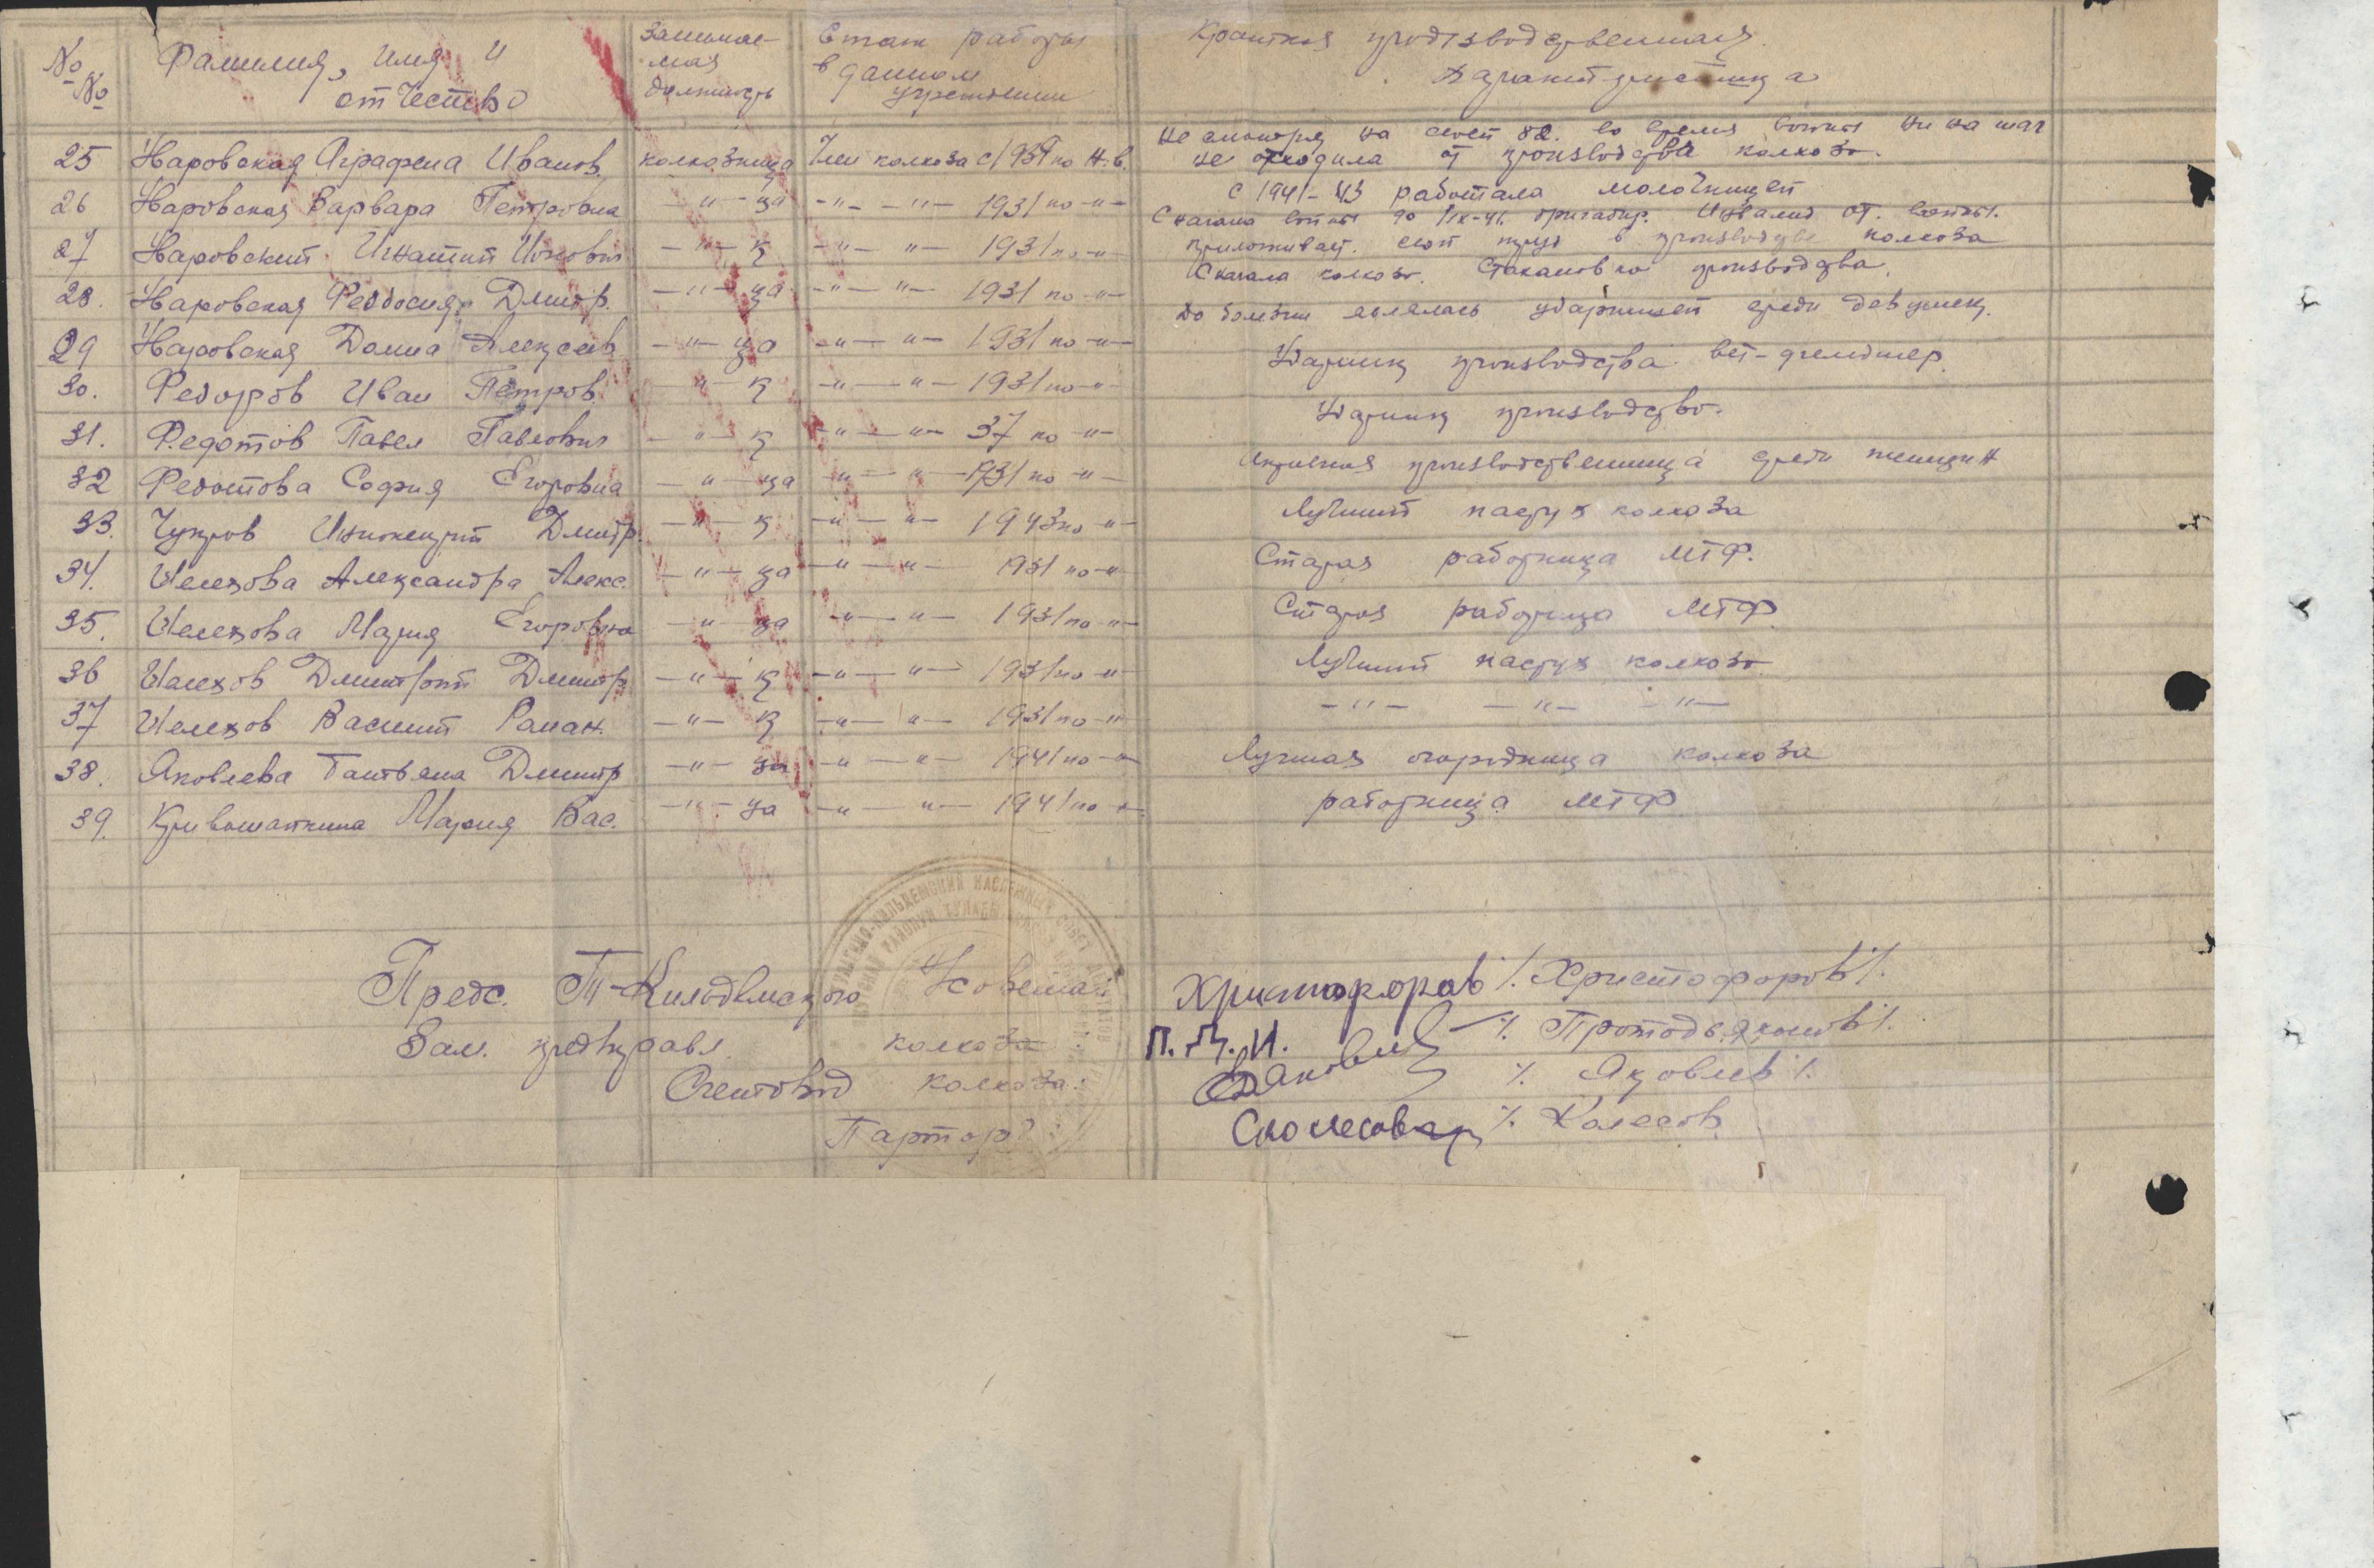 №№ Фамилия, имя и отчество Занимаемая должность Стаж работы в данном учреждении Краткая производственная характеристика
25 Наровская Аграфена Иванов. колхозница Член колхоза с 1939 по н.в. Не смотря на свои 82. во время войны ни на шаг не отходила от производства колхоза.
26 Наровская Варвара Петровна —"— ца —"— —"— 1931 по —"— С 1941-43 работала молочницей
27 Наровский Игнатий —"— к —"— "— 1931 по —"— Сначала войны до 1/IX-41. бригадир. Инвалид от. войны. Приложивает. свой труд в производстве колхоза
28. Наровская Феодосия Дмитр. —"— ца —"— "— 1931 по —"— Сначала колхоза. Стахановка производства.
29 Наровская Домна Алексеев —"— ца —"— "— 1931 по —"— До болезни являлась ударницей среди девушек.
30. Федоров Иван Петров. —"— к —"— "— 1931 по —"— Ударник производства. вет-фельдшер.
31. Федотов Павел Павлович —"— к —"— "— 37 по —"— Ударник производства.
32 Федотова София Егоровна —"— ца —"— "— 1931 по —"— Активная производственница среди женщин
33. Чупров Инокентий Дмитр. —"— к —"— "— 1943 по —"— Лучший пастух колхоза
34. Шелехова Александра Алекс. —"— ца —"— "— 1931 по —"— Старая работница МТФ.
35. Шелехова Мария Егоровна —"— ца —"— "— 1931 по —"— Старая работница МТФ.
36 Шелехов Дмитрий Дмитр —"— к —"— "— 1931 по —"— Лучший пастух колхоза
37 Шелехов Василий Роман. —"— к —"— "— 1931 по —"— —"— —"— —"—
38. Яковлева Татьяна Дмитр —"— ца —"— "— 1941 по —"— Лучшая огородница колхоза
39. Кривошапкина Мария Вас. —"— ца —"— "— 1941 по —"— работница МТФ
Предс. Т-Кильдемского Н совета: Христофоров /. Христофоров /.
Зам. предправл. колхоза: П.Д.И. /. Протодьяконов /.
Счетовод колхоза: Яковлев /. Яковлев /.
Парторг: Колесов /. Колесов